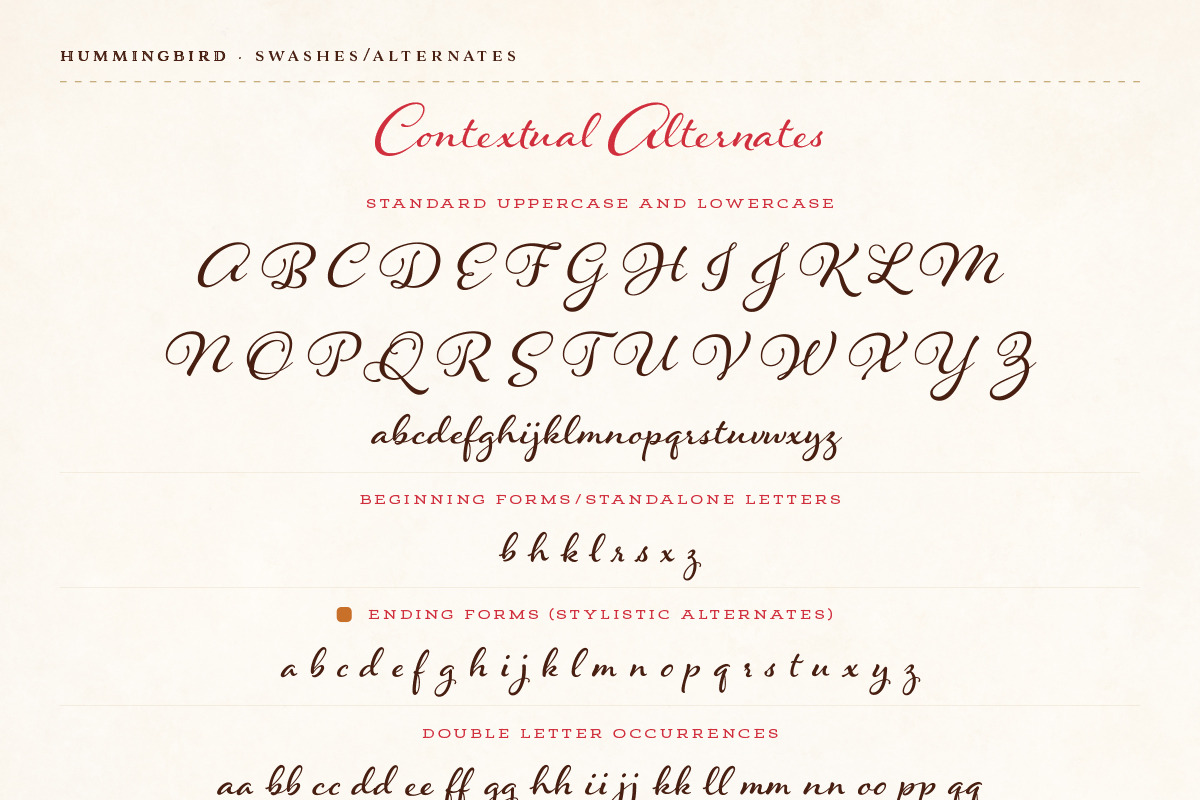 HUMMINGBIRD · SWASHES/ALTERNATES
Contextual Alternates
STANDARD UPPERCASE AND LOWERCASE
A B C D E F G H I J K L M
N O P Q R S T U V W X Y Z
abcdefghijklmnopqrstuvwxyz
BEGINNING FORMS/STANDALONE LETTERS
b h k l r s x z
ENDING FORMS (STYLISTIC ALTERNATES)
a b c d e f g h i j k l m n o p q r s t u x y z
DOUBLE LETTER OCCURRENCES
aa bb cc dd ee ff gg hh ii jj kk ll mm nn oo pp qq